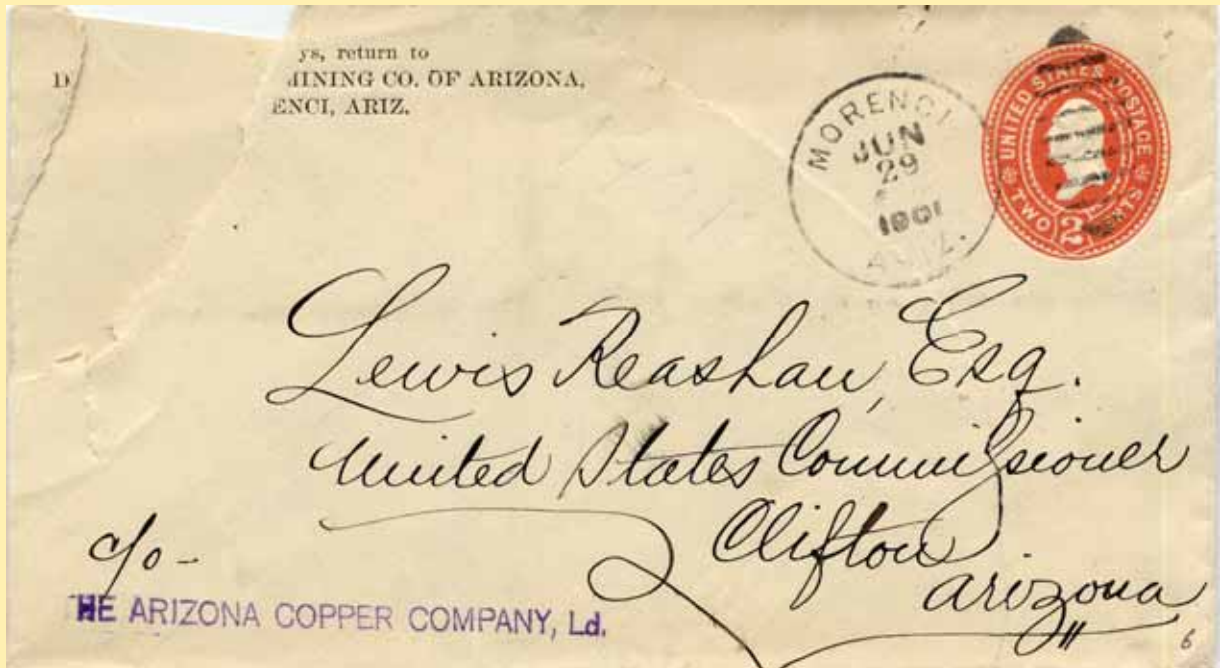 ys, return to
D MINING CO. OF ARIZONA,
ENCI, ARIZ.
MORENCI
JUN
29
1901
ARIZ.
UNITED STATES POSTAGE
TWO 2 CENTS
Lewis Reashaw, Esq.
United States Commissioner
Clifton
Arizona
c/o -
HE ARIZONA COPPER COMPANY, Ld.
6